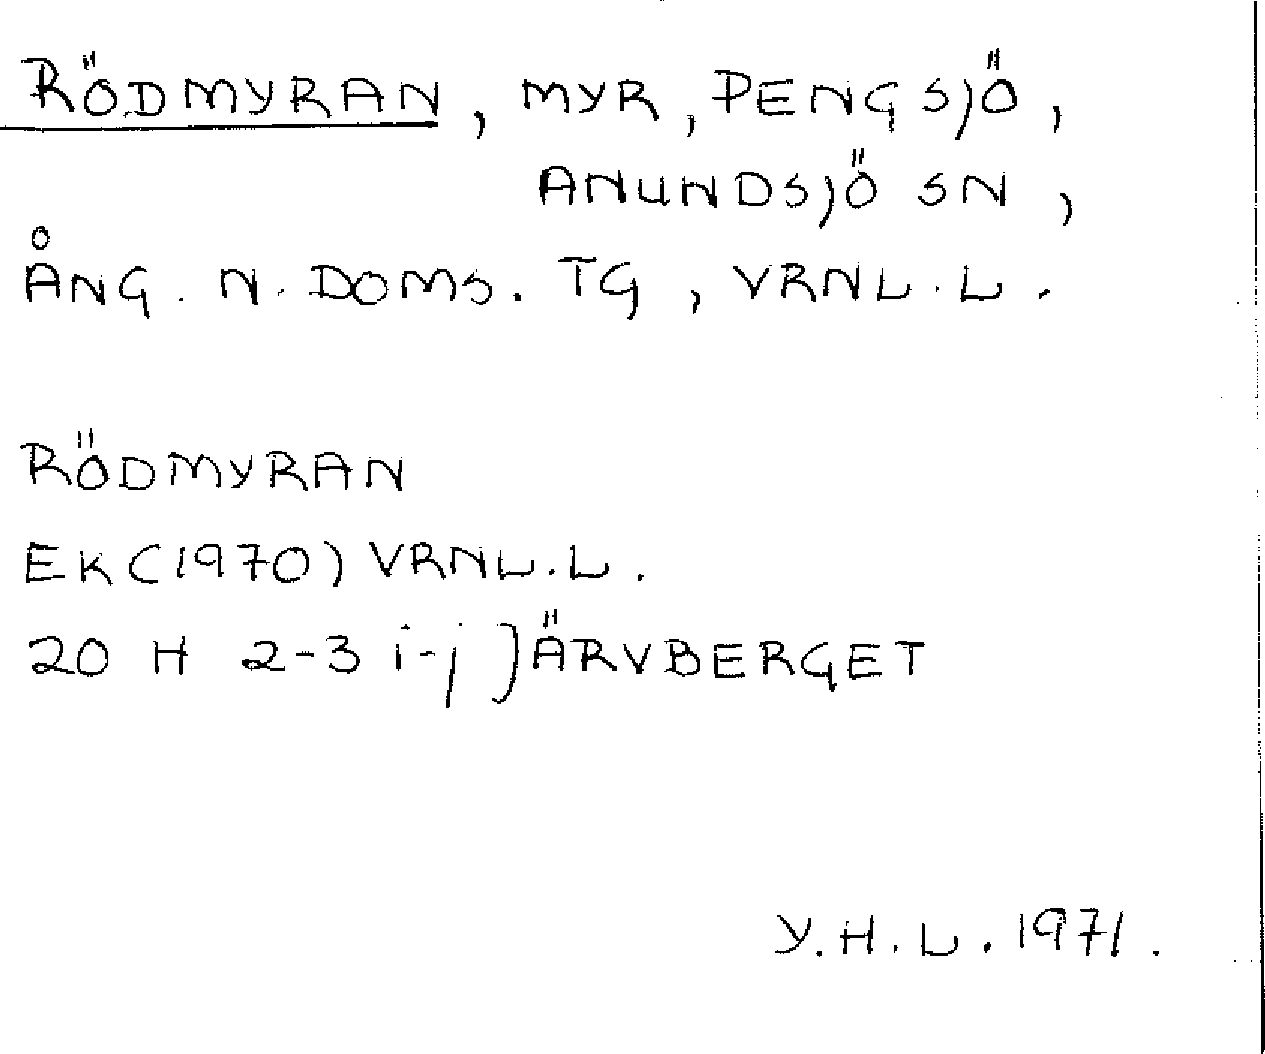 RÖDMYRAN, MYR, PENGSJÖ,
ANUNDSJÖ SN,
ÅNG. N. DOMS. TG, VRNL. L.
RÖDMYRAN
EK (1970) VRNL. L.
20 H 2-3 i-j JÄRVBERGET
Y. H. L. 1971.